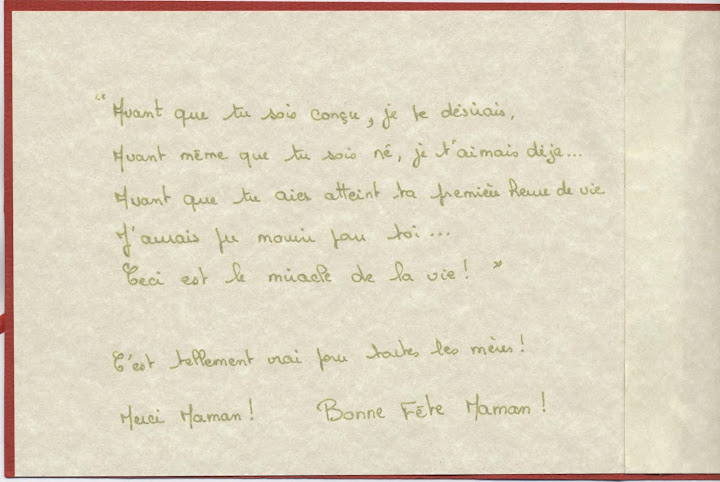 "Avant que tu sois conçu, je te désirais,
Avant même que tu sois né, je t'aimais déjà...
Avant que tu aies atteint ta première heure de vie
J'aurais pu mourir pour toi...
Ceci est le miracle de la vie! "
C'est tellement vrai pour toutes les mères!
Merci Maman! Bonne Fête Maman!